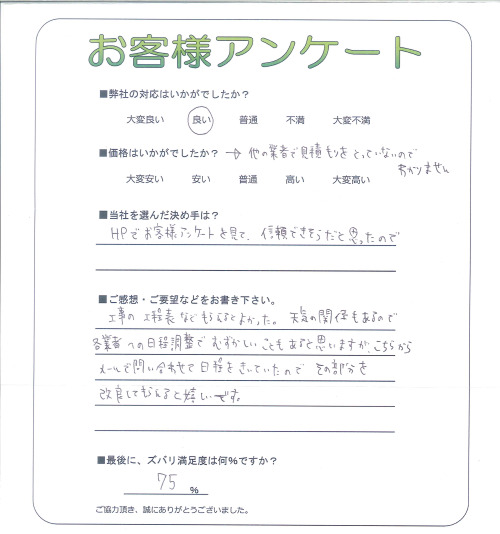 お客様アンケート
■弊社の対応はいかがでしたか？
大変良い 良い 普通 不満 大変不満
■価格はいかがでしたか？ → 他の業者で見積もりをとっていないので
わかりません
大変安い 安い 普通 高い 大変高い
■当社を選んだ決め手は？
HPでお客様アンケートを見て、信頼できそうだと思ったので
■ご感想・ご要望などをお書き下さい。
工事の工程表などもらえるとよかった。天気の関係もあるので
各業者への日程調整でむずかしいこともあると思いますが、こちらから
メールで問い合わせて日程をきいていたので その部分を
改良してもらえると嬉しいです。
■最後に、ズバリ満足度は何％ですか？
75 ％
ご協力頂き、誠にありがとうございました。